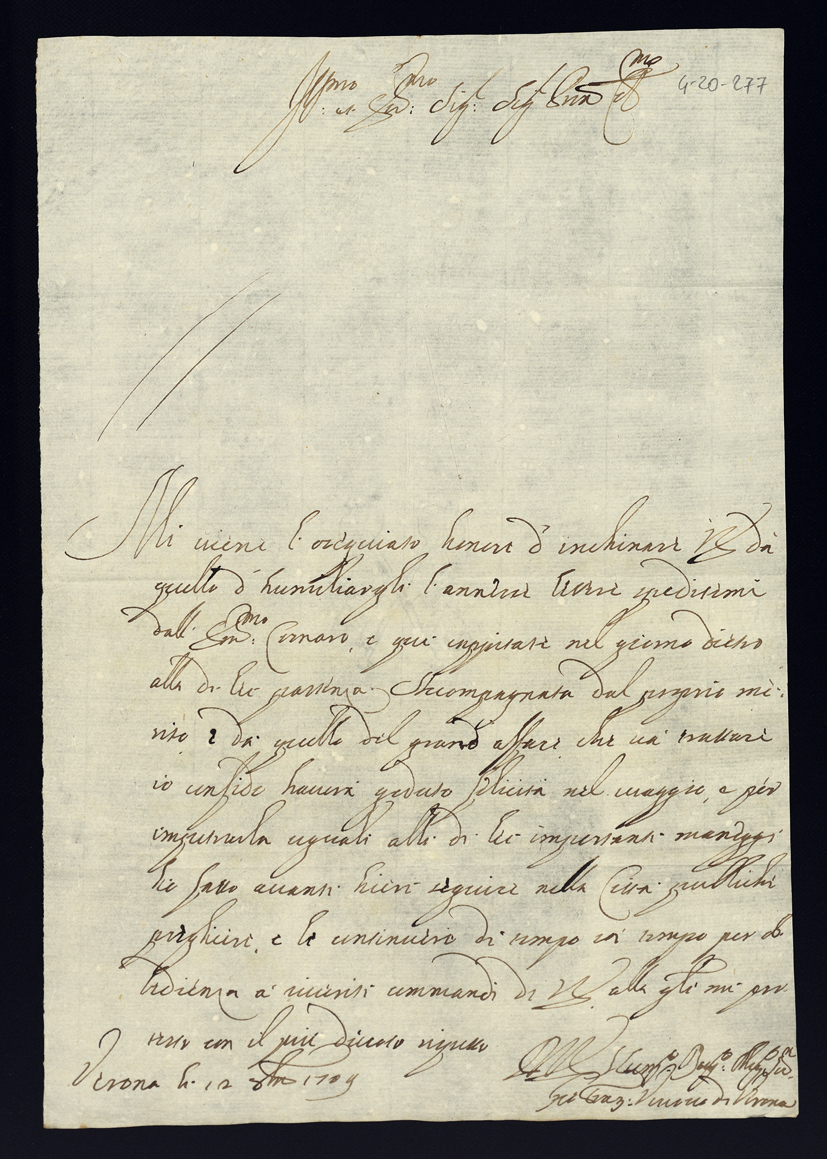 Ill:mo et Ecc:mo Sig.r Sig.r P'ron Col:mo
4-20-277
Mi viene l'ossequiato honore d'inchinare VE da
quello d'humiliargli l'annesse lettere speditemi
dall' Em:mo Cornaro, e qui capitate nel giorno dietro
alla di lei partenza. Accompagnata dal proprio me:
rito e da quello del grand' affare che va' trattare
io confido haverà goduto felicità nel viaggio, e per
impetrarla uguali alli di lei importanti maneggi
hò fatto avanti hieri seguire nella Città publiche
preghiere, e le continuerò di tempo in tempo per ob
bedienza a' riveriti commandi di VE alla qle mi pro
testo con il più divoto rispetto
Verona li 12 1709
DVE
Vescovo di Verona